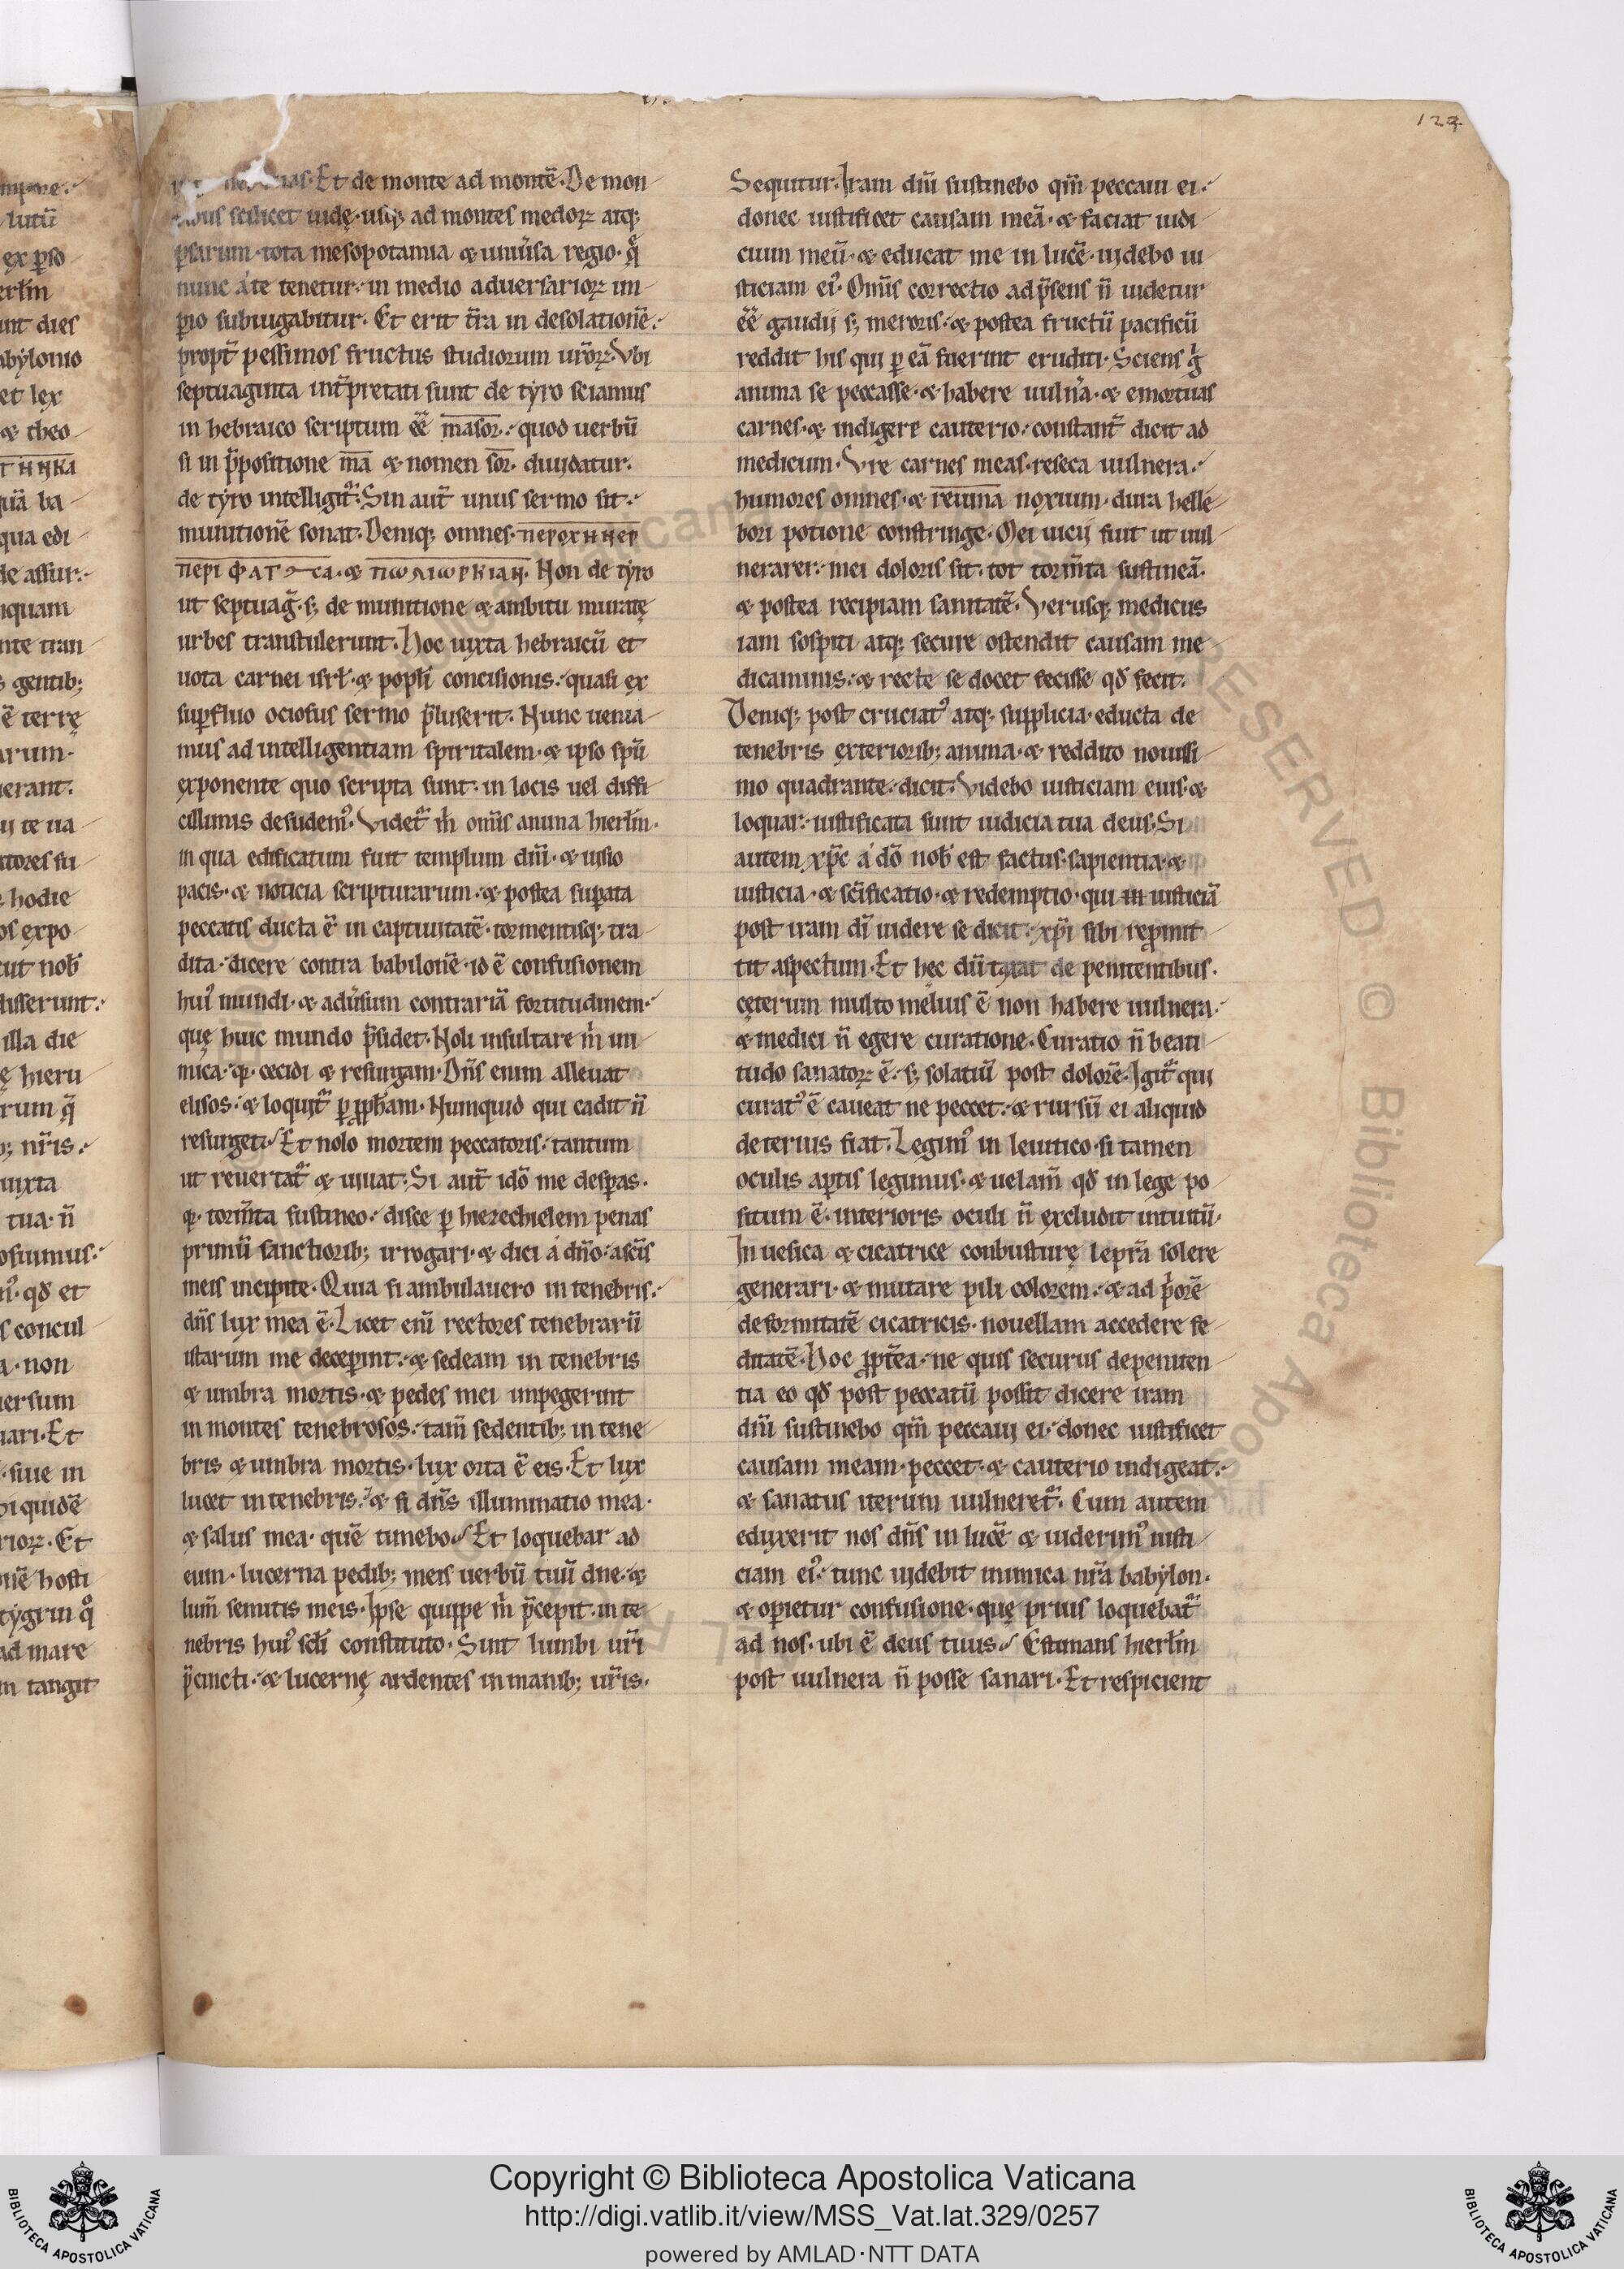 124
Et de monte ad montē. De mon
scilicet iudę. usq; ad montes medoꝝ atq;
ꝑsarum. tota mesopotamia & uniũsa regio. q̃
nunc a te tenetur. in medio aduersarioꝝ im
ꝑio subiugabitur. Et erit t̃ra in desolationē.
propt̃ pessimos fructus studiorum ur̃oꝝ. Vbi
septuaginta int̃pretati sunt de tyro sciamus
in hebraico scriptum eē̃ masor. quod uerbū
si in p̃positione ma & nomen sor. diuidatur.
de tyro intelligit̃. Sin aut̃ unus sermo sit.
munitionē sonat. Deniq; omnes. περοχηνερ
περι & πωλιωρκιαν. Non de tyro
ut septuag̃. s; de munitione & ambitu muratę
urbes transtulerunt. Hoc iuxta hebraicū et
uota carnei isrł. & popłi concisionis. quasi ex
suꝑfluo ociosus sermo p̃luserit. Nunc uenia
mus ad intelligentiam spiritalem. & ipso spū
exponente quo scripta sunt. in locis uel diffi
cillimis desudemꝰ. Videt̃ m̃ om̃is anima hierłm.
in qua edificatum fuit templum dñi. & uisio
pacis. & noticia scripturarum. & postea suꝑata
peccatis ducta ē in captiuitatē. tormentisq; tra
dita. dicere contra babilonē. id ē confusionem
huiꝰ mundi. & adũsium contrariā fortitudinem.
quę huic mundo p̃sidet. Noli insultare m̃ ini
mica. q̨. cecidi & resurgam. Dñs enim alleuat
elisos. & loquit̃ ꝑ ꝓph̃am. Nunquid qui cadit ñ
resurget. Et nolo mortem peccatoris. tantum
ut reuertat̃ & uiuat. Si aut̃ idō me desꝑas.
q̨. torm̃ta sustineo. disce ꝑ hierechielem penas
primū sanctiorib; irrogari. & dici a dño. a sc̃is
meis incipite. Quia si ambulauero in tenebris.
dñs lux mea ē. Licet eni rectores tenebrarū
istarum me deceꝑint. & sedeam in tenebris
& umbra mortis. & pedes mei impegerunt
in montes tenebrosos. tam̃ sedentib; in tene
bris & umbra mortis. lux orta ē eis. Et lux
lucet in tenebris. & si dñs illuminatio mea.
& salus mea. quē timebo. Et loquebar ad
eum. lucerna pedib; meis uerbū tuū dñe. &
lum̃ semitis meis. Ipse quippe m̃ p̃cepit. in te
nebris huiꝰ scłi constituto. Sint lumbi ur̃i
p̃cincti. & lucernę ardentes in manib; ur̃is.
Sequitur. Iram dñi sustinebo qm̃ peccaui ei.
donec iustificet causam meā. & faciat iudi
cium meū. & educat me in lucē. uidebo iu
sticiam eiꝰ. Om̃is correctio ad p̃sens ñ uidetur
eē̃ gaudii s; meroris. & postea fructū pacificū
reddit his qui ꝑ eā fuerint eruditi. Sciens g̃
anima se peccasse. & habere uulnera. & emortuas
carnes. & indigere cauterio. constant̃ dicit ad
medicum. Vre carnes meas. reseca uulnera.
humores omnes. & reuma noxium. dura helle
bori potione constringe. Mei uicii fuit ut uul
nerarer. mei doloris sit. tot torm̃ta sustineā.
& postea recipiam sanitatē. Verusq; medicus
iam sospiti atq; secure ostendit causam me
dicaminis. & recte se docet fecisse qđ fecit.
Deniq; post cruciatꝰ atq; supplicia. educta de
tenebris exteriorib; anima. & reddito nouissi
mo quadrante. dicit. Videbo iusticiam eius. &
loquar. iustificata sunt iudicia tua deus. Si
autem xp̃c a dō nob̃ est factus. sapientia. &
iusticia. & sc̃ificatio. & redemptio. qui in iusticiā
post iram di uidere se dicit. xp̃i sibi reꝓmit
tit aspectum. Et hęc dū de penitentibus.
cęterum multo melius ē non habere uulnera.
& medici ñ egere curatione. Curatio ñ beati
tudo sanatoꝝ ē. s; solatiū post dolorē. Igit̃ qui
curatꝰ ē caueat ne peccet. & rursū ei aliquid
deterius fiat. Legimꝰ in leuitico. si tamen
oculis aꝑtis legimus. & uelam̃ qđ in lege po
situm ē. interioris oculi ñ excludit intuitū.
In uesica & cicatrice conbusturę leprā solere
generari. & mutare pili colorem. & ad p̃orē
deformitatē cicatricis. nouellam accedere fe
ditatē. Hoc ꝓpt̃ea. ne quis securus de peniten
tia eo qđ post peccatū possit dicere iram
dñi sustinebo qm̃ peccaui ei. donec iustificet
causam meam. peccet. & cauterio indigeat.
& sanatus iterum uulneret̃. Cum autem
eduxerit nos dñs in lucē & uiderimꝰ iusti
ciam eiꝰ. tunc uidebit inimica nr̃a babylon.
& oꝑietur confusione. quę prius loquebat̃
ad nos. ubi ē deus tuus. Estimans hierłm
post uulnera ñ posse sanari. Et respicient
Copyright © Biblioteca Apostolica Vaticana
http://digi.vatlib.it/view/MSS_Vat.lat.329/0257
powered by AMLAD·NTT DATA
BIBLIOTECA APOSTOLICA VATICANA
BIBLIOTECA APOSTOLICA VATICANA